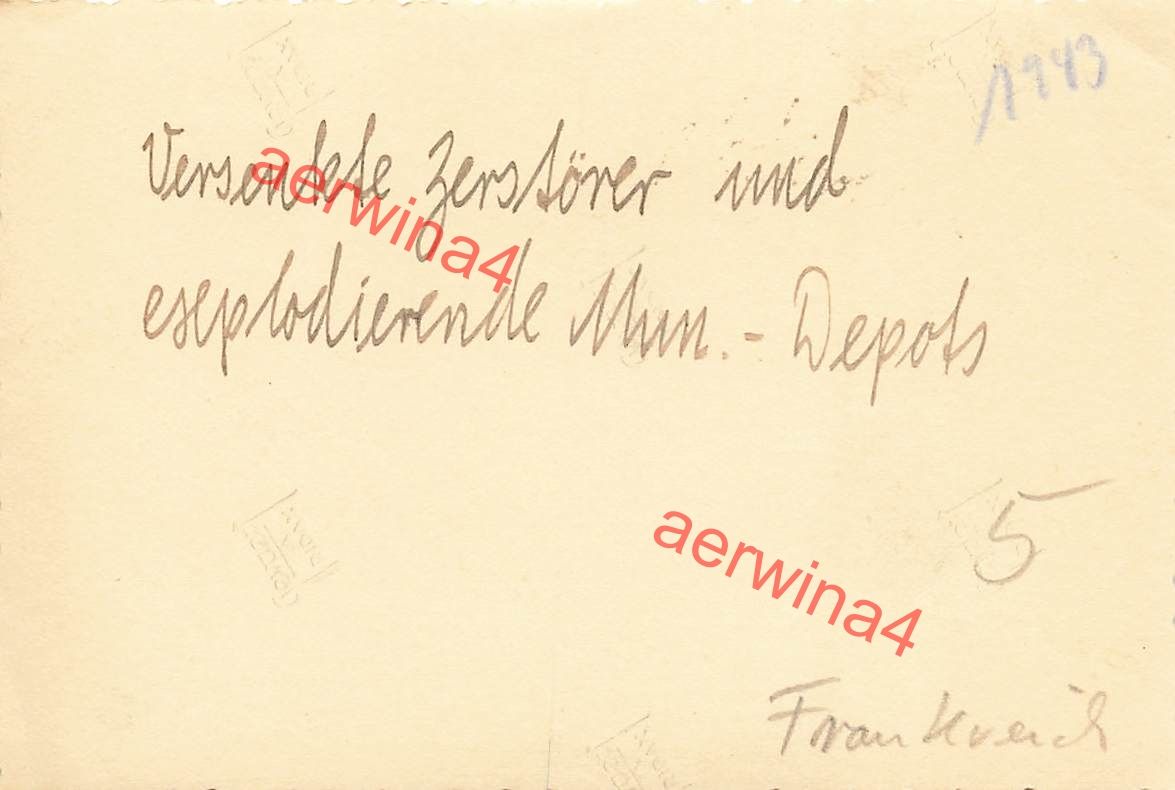 1943
Versenkte Zerstörer und
exeplodierende Mun.-Depots
5
Frankreich
aerwina4
aerwina4